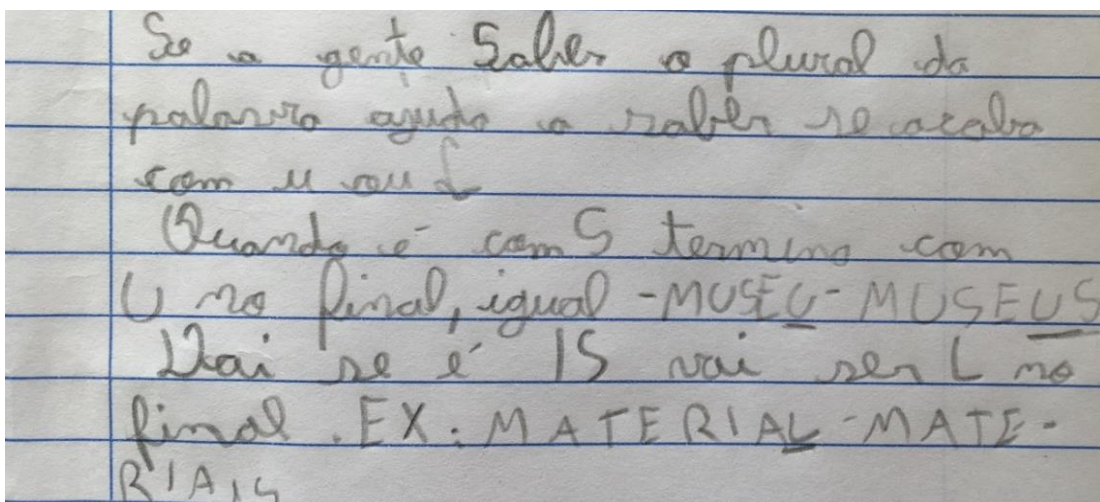 Se a gente Saber o plural da
palavra ajuda a saber se acaba
com u ou L
Quando é com S termina com
U no final, igual -MUSEU-MUSEUS
Dai se é IS vai ser L no
final. EX: MATERIAL-MATE-
RIAIS